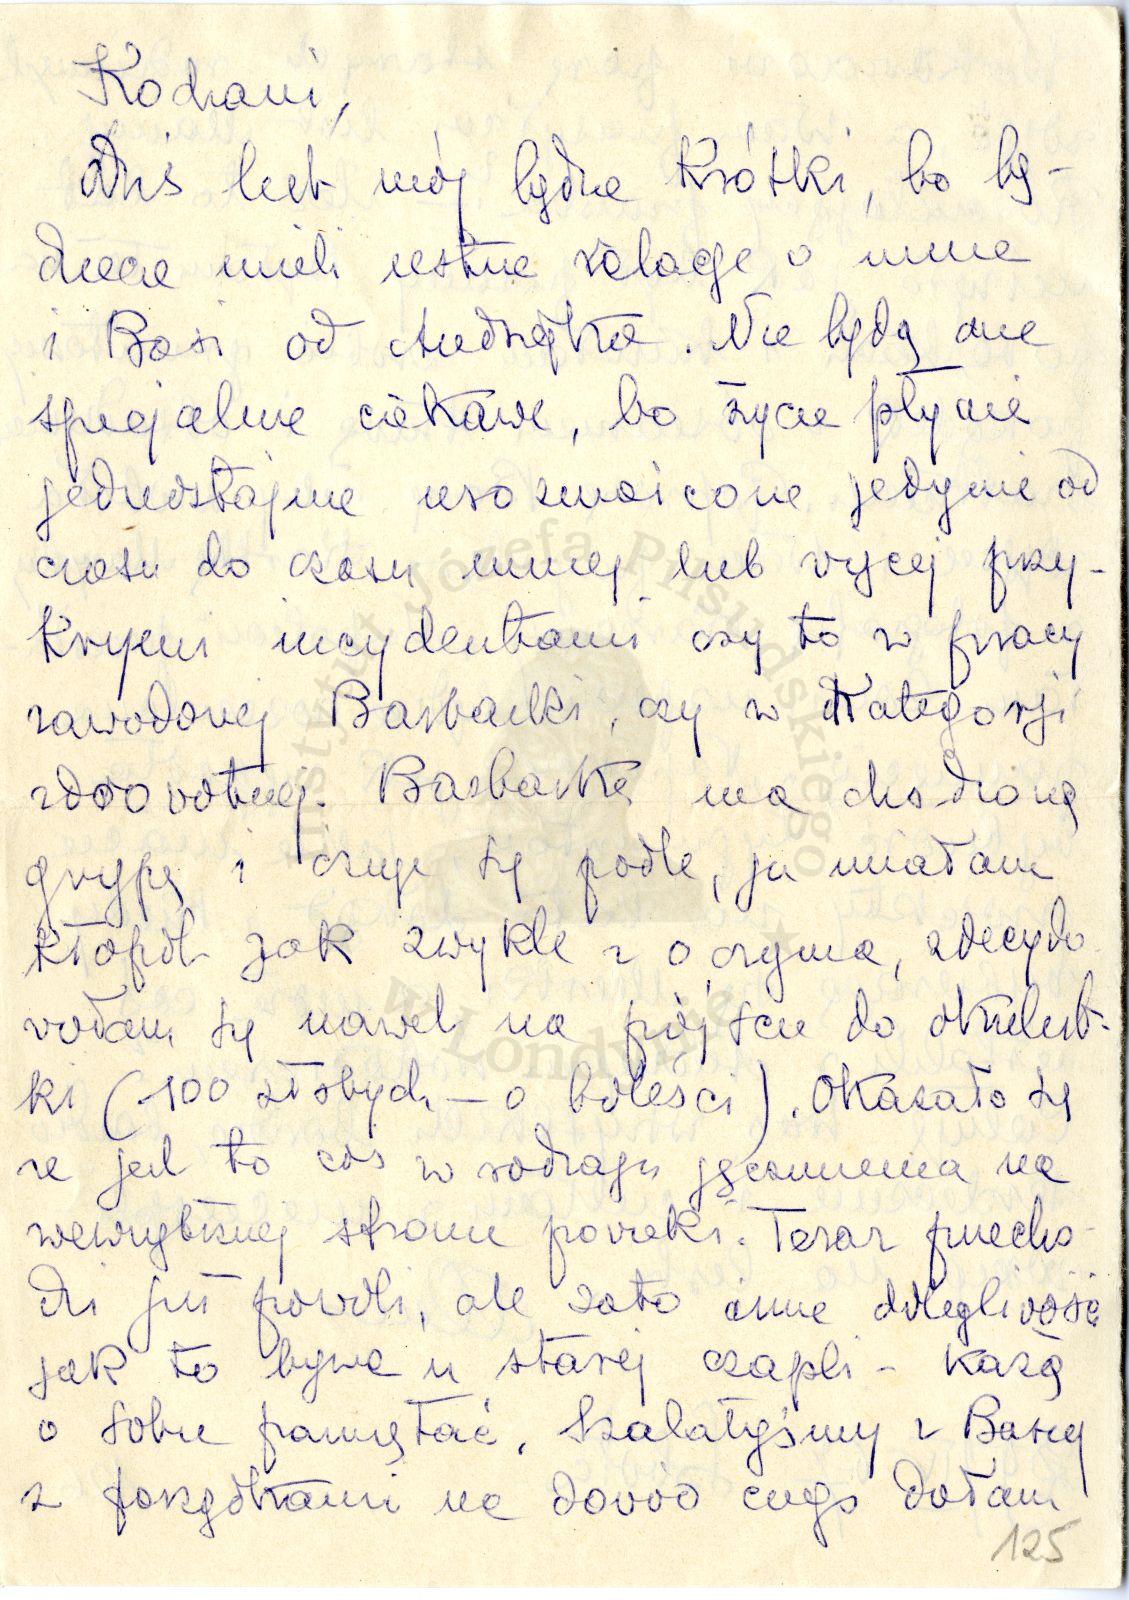 Kochani,
Dziś list mój będzie krótki, bo bę-
dziecie mieli ustne relacje o mnie
i Basi od Andrzejka. Nie będą one
specjalnie ciekawe, bo życie płynie
jednostajnie urozmaicone jedynie od
czasu do czasu mniej lub więcej przy-
krymi incydentami czy to w pracy
zawodowej Basbaśki, czy w kategorji
zdrowotnej. Basbaśka ma chodzoną
grypę i czuje się podle, ja miałam
kłopot jak zwykle z oczyma, zdecydo
wałam się nawet na pójście do okulist-
ki (100 złotych – o boleści). Okazało się
że jest to coś w rodzaju jęczmienia na
wewnętrznej stronie powieki. Teraz przecho-
dzi już powoli, ale zato inne dolegliwość
jak to bywa u starej czapli – każą
o sobie pamiętać. Szalałyśmy z Basią
z porządkami na dowód czego dołam
125
Instytut Józefa Piłsudskiego
w Londynie